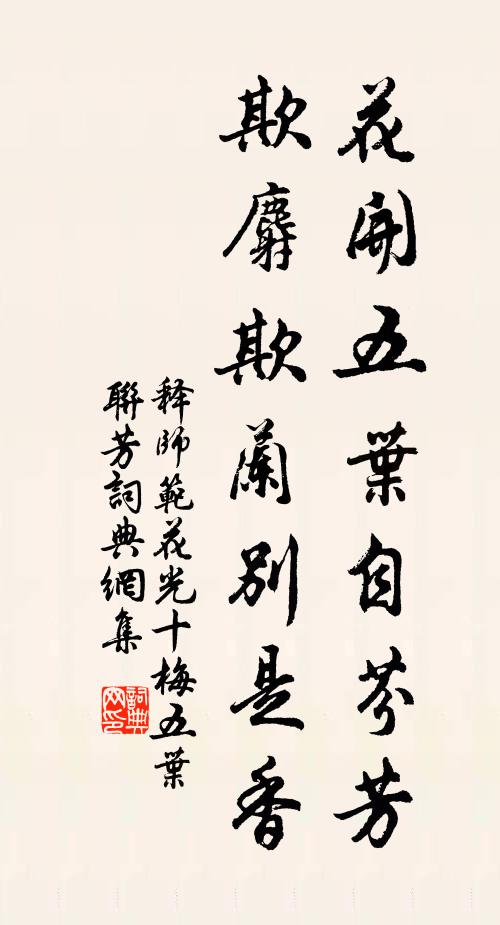 花開五葉自芬芳
欺麝欺蘭別是香
释師範花光十梅五葉
聯芳詞典網集
詞典网印